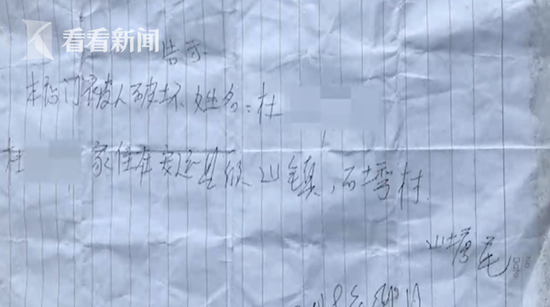 看看新闻
告示
本厕门被人破坏 姓名:杜
杜 家住在安远县欣山镇,石湾村.
山塘尾